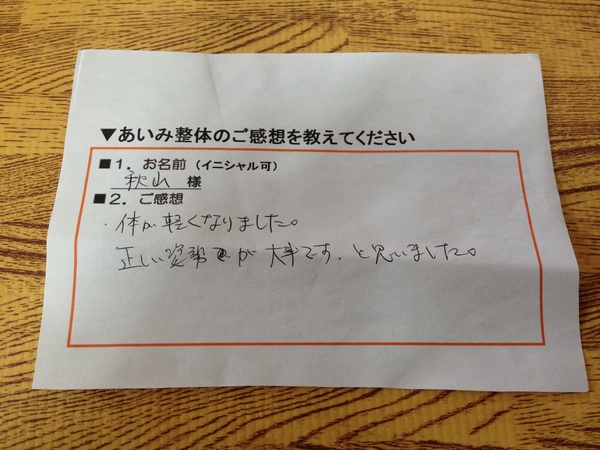 ▼あいみ整体のご感想を教えてください
■1．お名前（イニシャル可）
秋山 様
■2．ご感想
・体が軽くなりました。
正しい姿勢が大事です、と思いました。